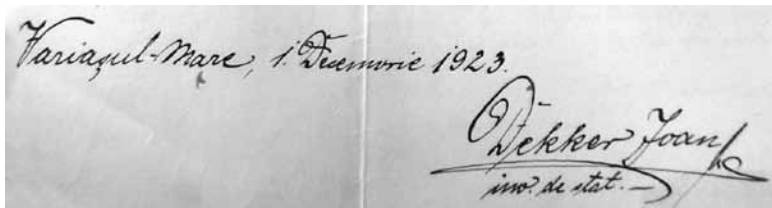 Variaşul-Mare, 1. Decemvrie 1923.
Dekker Joan
înv. de stat.